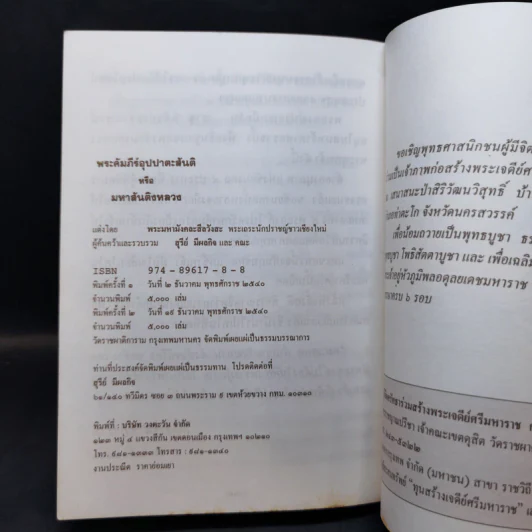 พระคัมภีร์อุปปาตะสันติ
หรือ
มหาสันติงหลวง
แต่งโดย พระมหามังคละสีลวังสะ พระเถระนักปราชญ์ชาวเชียงใหม่
ผู้ค้นคว้าและรวบรวม สุรีย์ มีผลกิจ และ คณะ
ISBN 974-89617-8-8
พิมพ์ครั้งที่ ๑ วันที่ ๒ ธันวาคม พุทธศักราช ๒๕๔๐
จำนวนพิมพ์ ๕,๐๐๐ เล่ม
พิมพ์ครั้งที่ ๒ วันที่ ๑๙ ธันวาคม พุทธศักราช ๒๕๔๐
จำนวนพิมพ์ ๕,๐๐๐ เล่ม
วัดราชผาติการาม กรุงเทพมหานคร จัดพิมพ์เผยแผ่เป็นธรรมบรรณาการ
ท่านที่ประสงค์จัดพิมพ์เผยแผ่เป็นธรรมทาน โปรดติดต่อที่
สุรีย์ มีผลกิจ
๖๑/๑๔๐ ทวีมิตร ซอย ๓ ถนนพระราม ๙ เขตห้วยขวาง กทม. ๑๐๓๑๐
พิมพ์ที่ : บริษัท วงตะวัน จำกัด
๑๒๓ หมู่ ๔ แขวงสีกัน เขตดอนเมือง กรุงเทพฯ ๑๐๒๑๐
โทร. ๙๘๑-๑๓๓๓ โทรสาร : ๙๘๑-๑๓๔๐
งานประณีต ราคาย่อมเยา
ขอเชิญพุทธศาสนิกชนผู้มีจิต
เป็นเจ้าภาพก่อสร้างพระเจดีย์ศรี
เสนาสนะป่าสิริวัฒนวิสุทธิ์ บ้า
ตาคะโก จังหวัดนครสวรรค์
เพื่อน้อมถวายเป็นพุทธบูชา
โพธิสัตตาบูชา และ เพื่อเฉลิม
อยู่หัวภูมิพลอดุลยเดชมหาราช
ครบ ๖ รอบ
ร่วมสร้างพระเจดีย์ศรีมหาราช
เจ้าคณะเขตดุสิต วัดราชผา
กรุงเทพ จำกัด (มหาชน) สาขา ราชวิถี
"ทุนสร้างเจดีย์ศรีมหาราช"